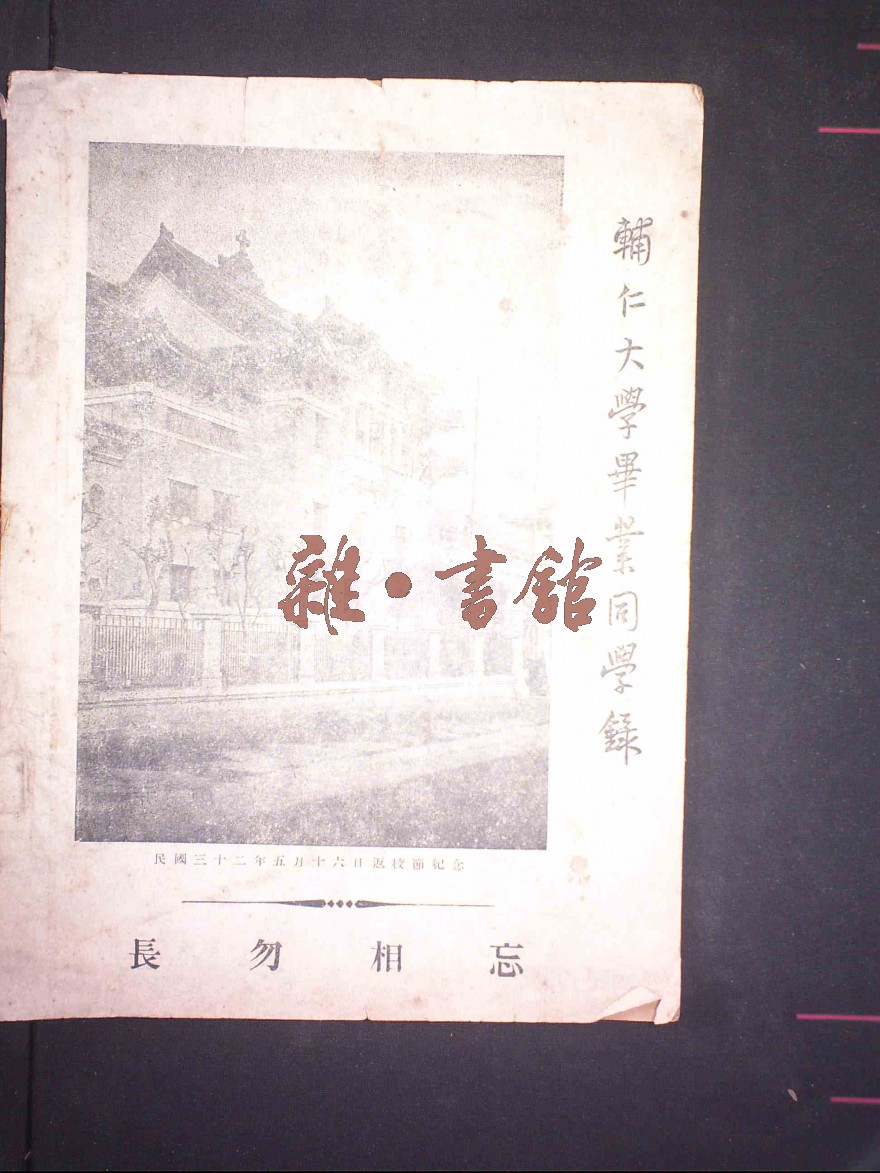 輔仁大學畢業同學錄
雜·書館
民國三十二年五月十六日返校節紀念
長勿相忘